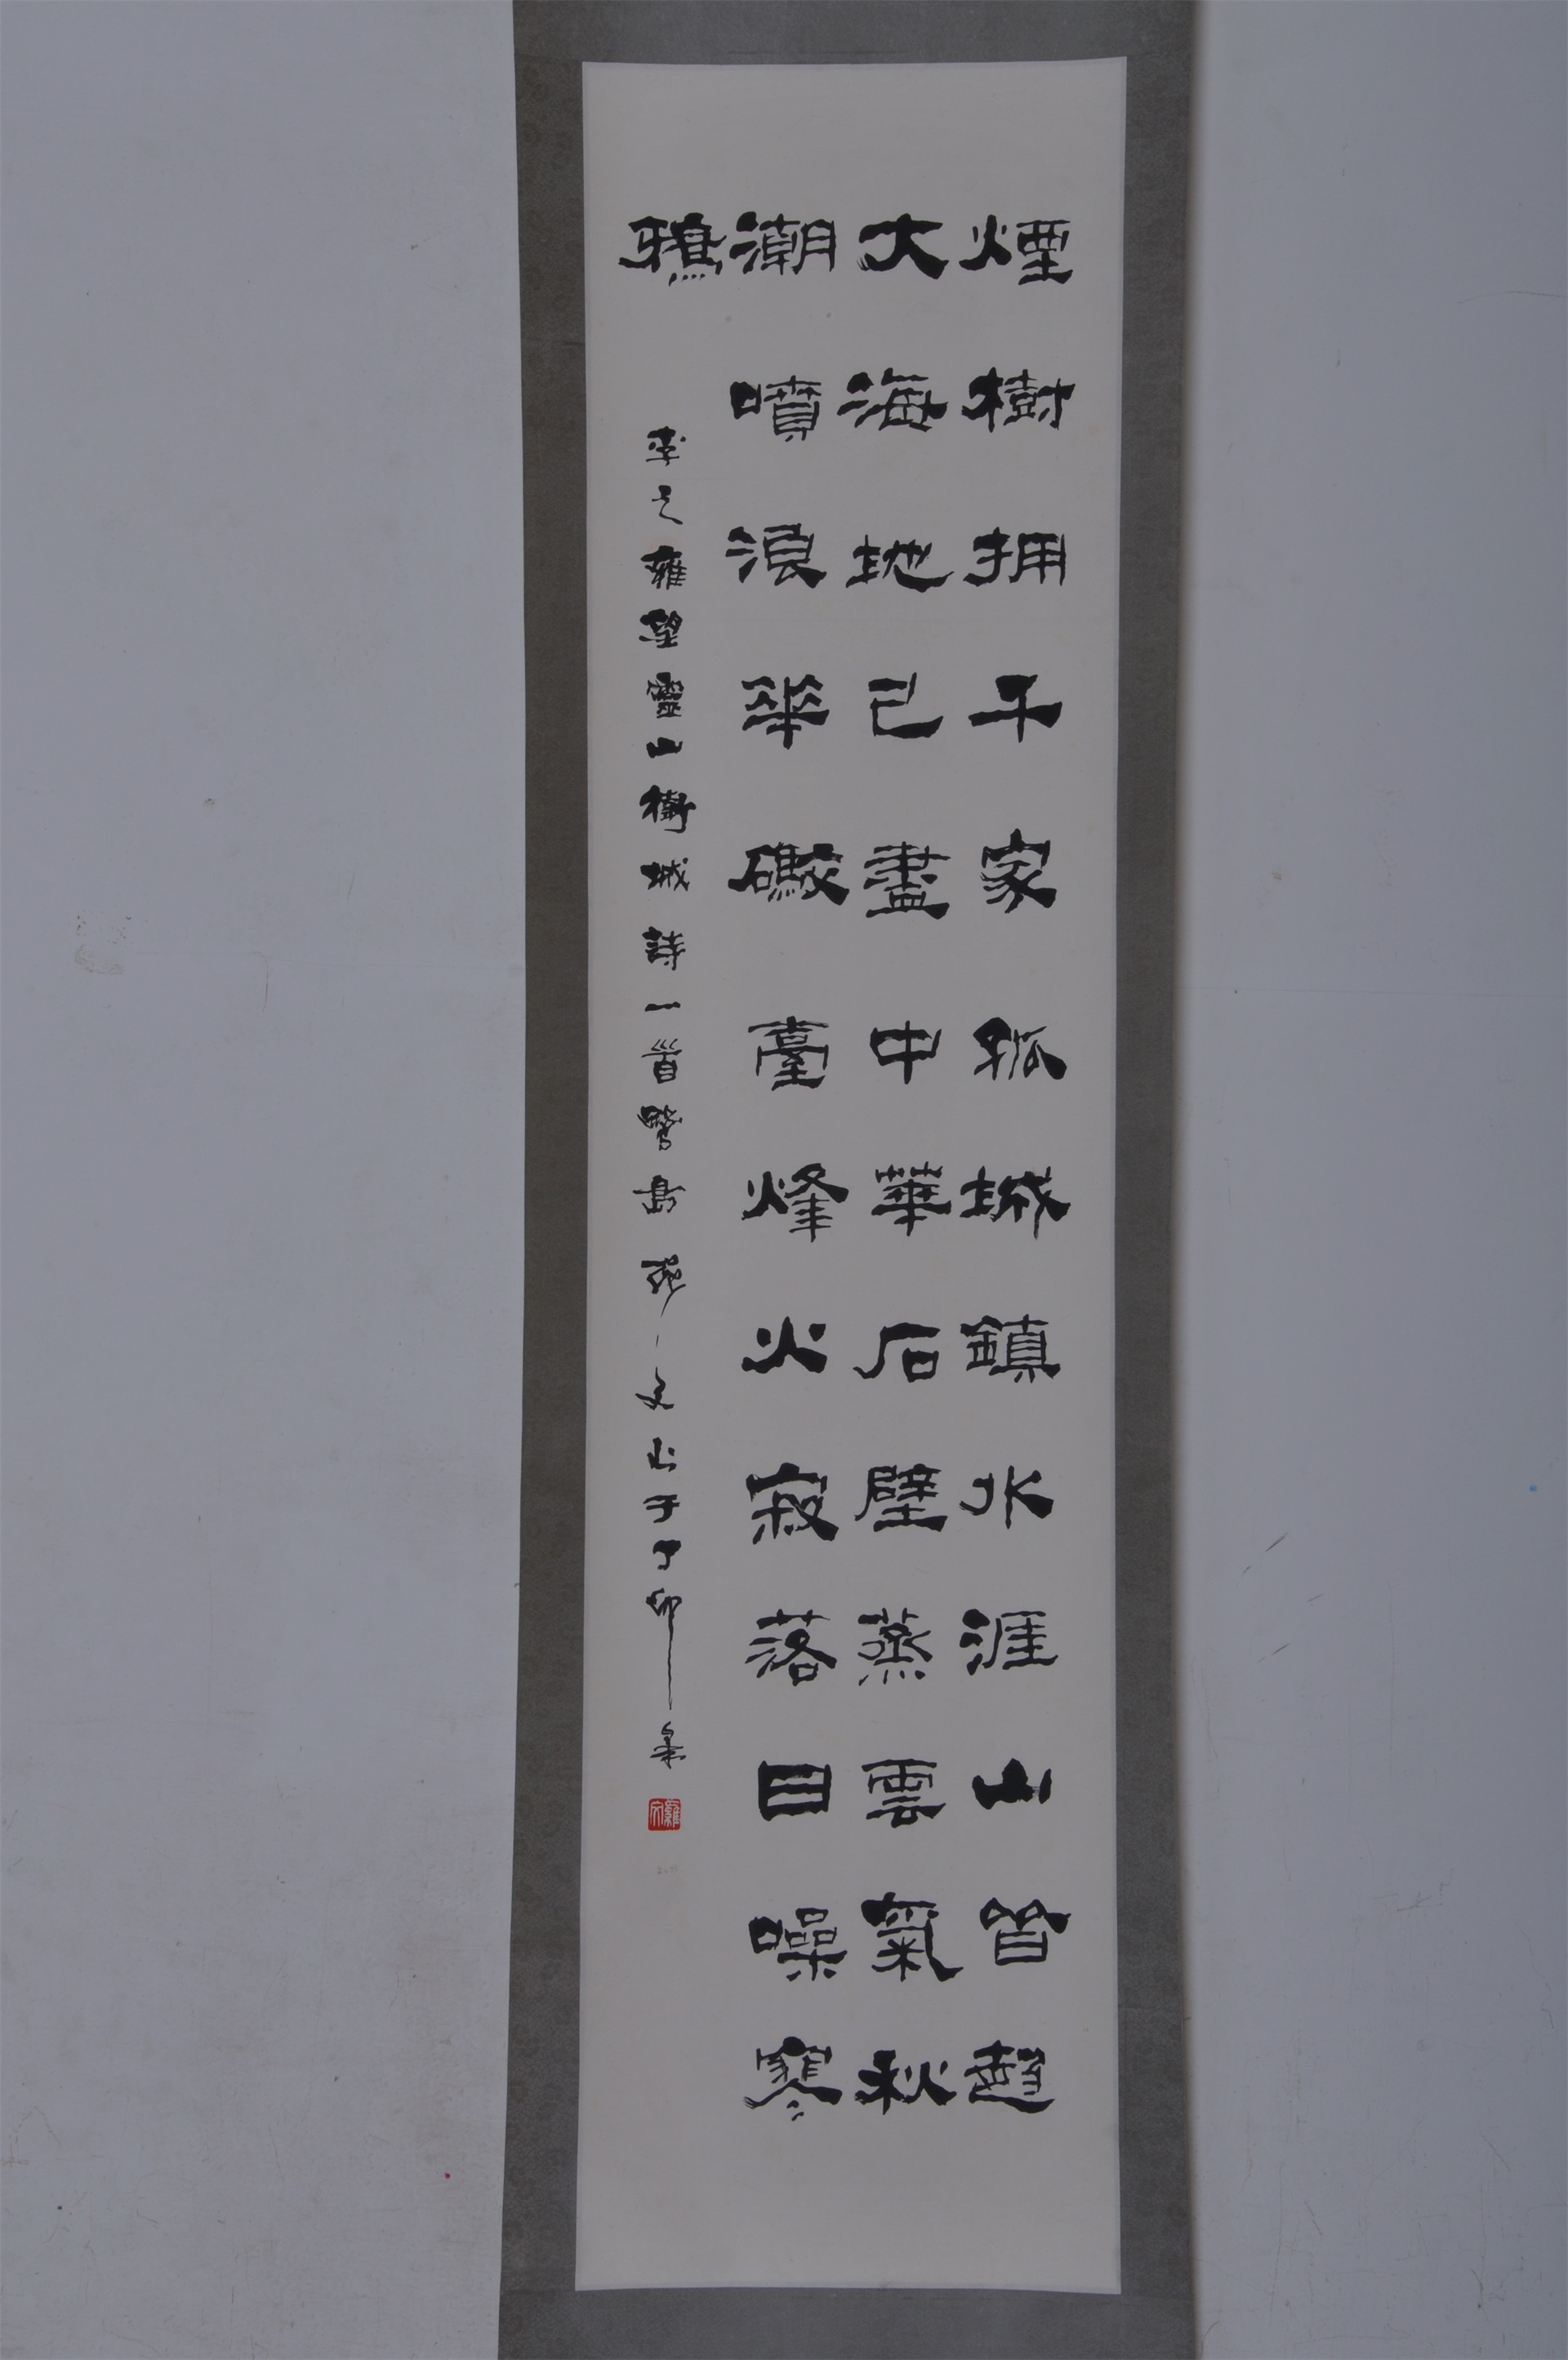 煙樹拥千家孤城鎮水涯山首趨
大海地已盡中華石壁蒸雲氣秋
潮噴浪花礮臺烽火寂落日噪寒
鴉
李之雍望靈山衛城詩一首 島 文 于丁卯